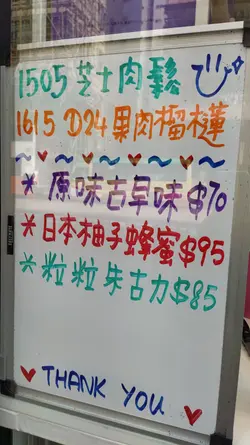 1505 芝士肉鬆
1615 D24果肉榴槤
* 原味古早味$70
* 日本柚子蜂蜜$95
* 粒粒朱古力$85
THANK YOU